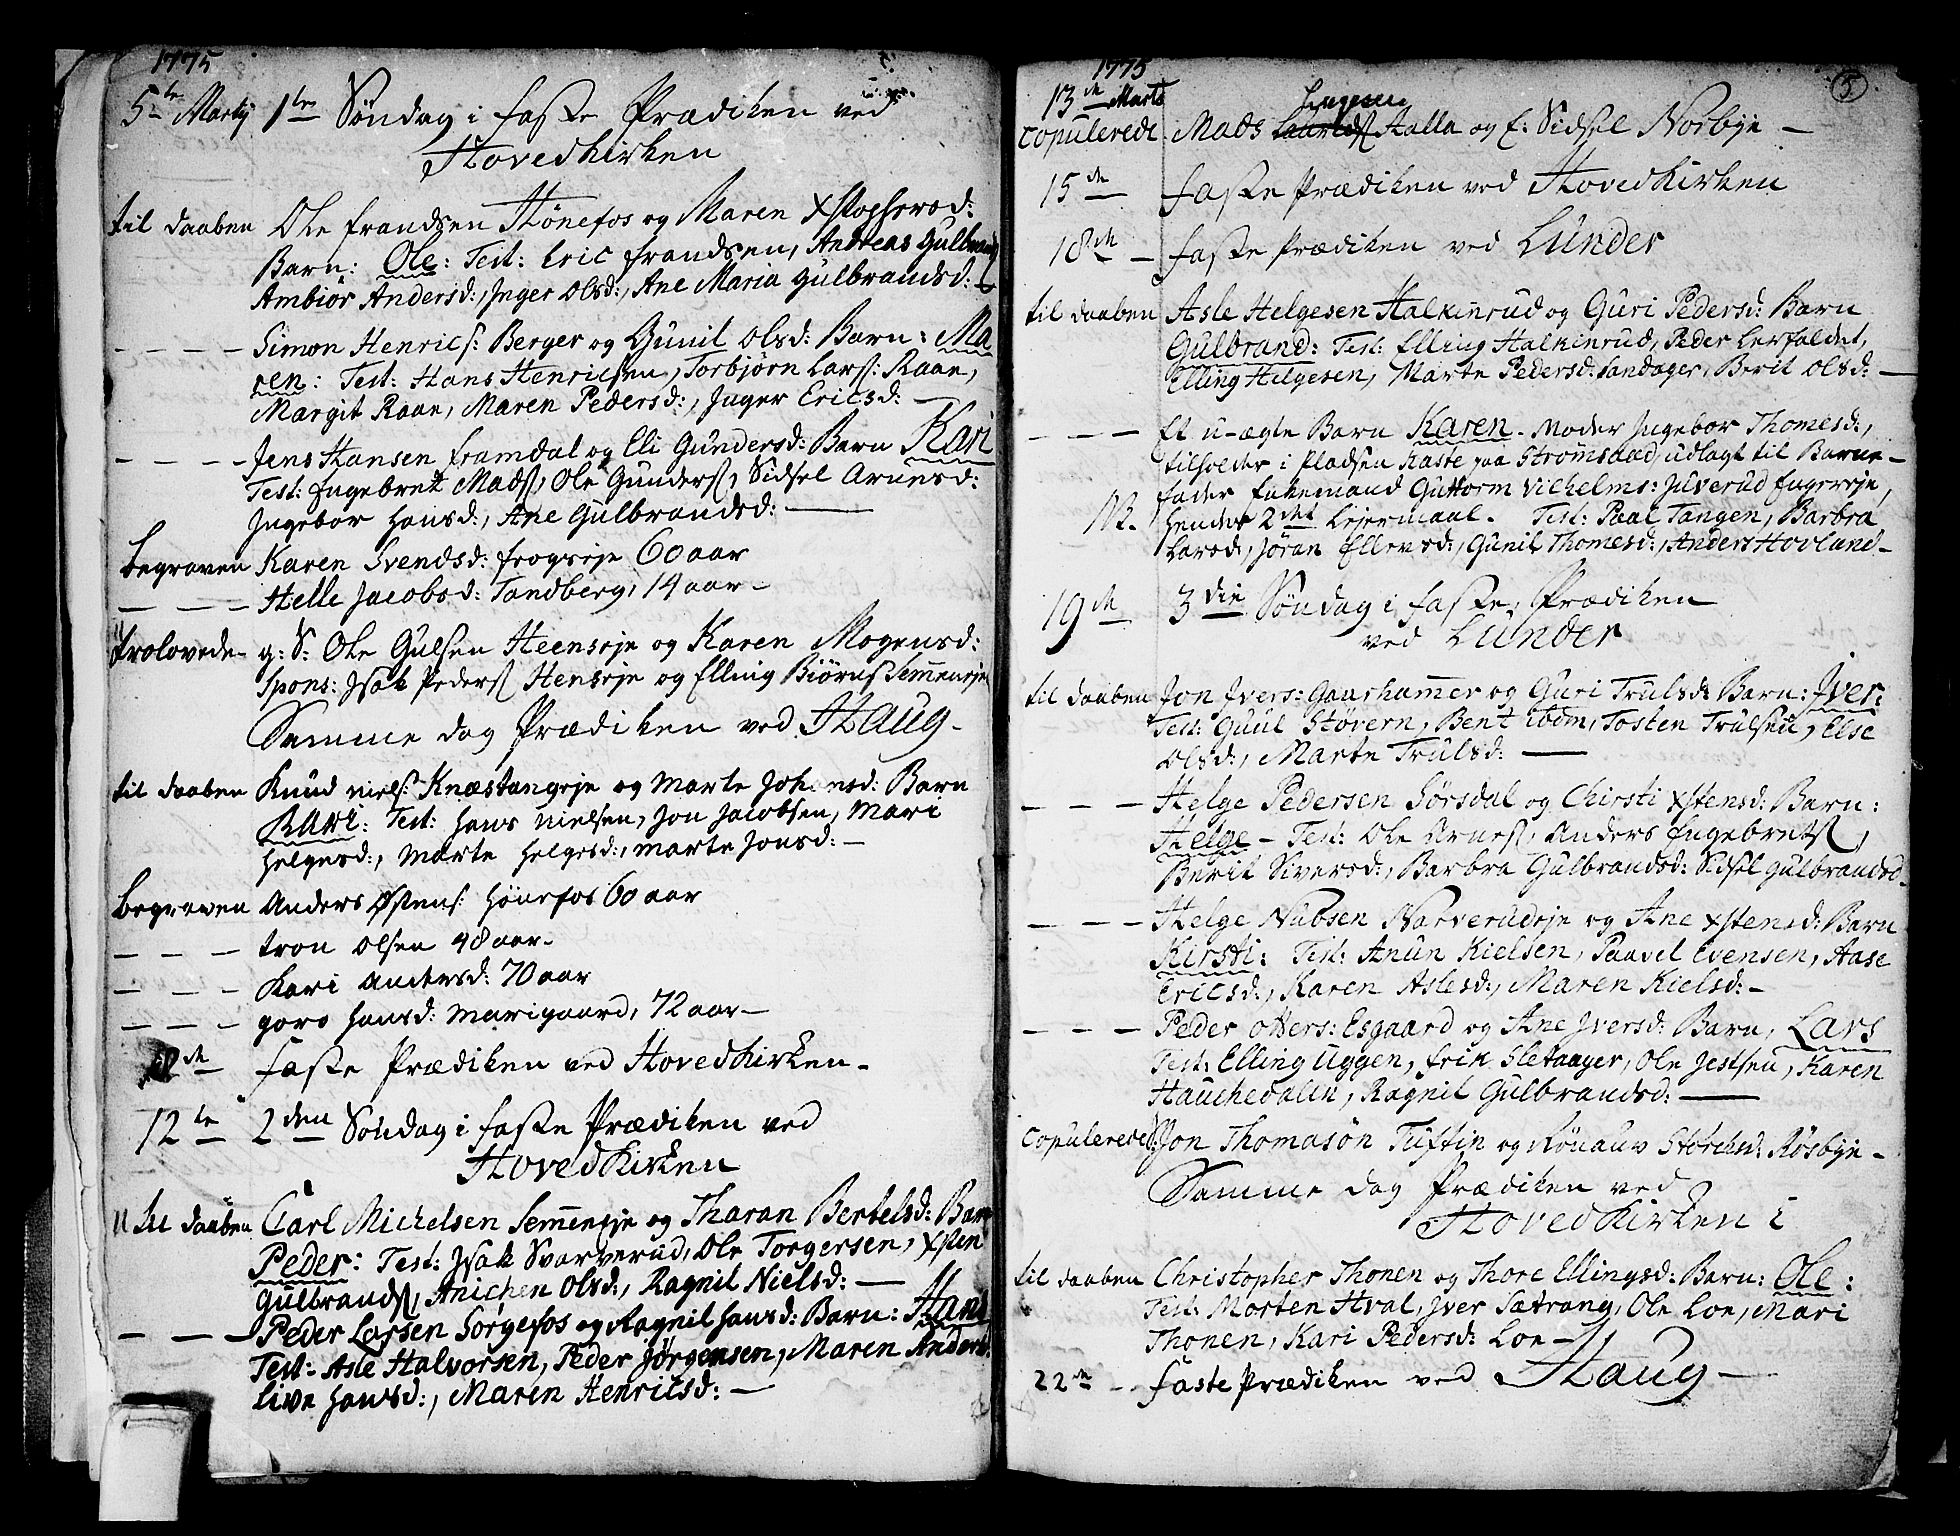 1775
5te Martij 1te Søndag i Faste Prædiken ved
Hovedkirken
til daaben Ole Frandsen Hönefos og Maren Xstophersd:
Barn: Ole: Test: Eric Frandsen, Andreas Gulbrands
Ambiör Andersd:, Inger Olsd:, Ane Maria Gulbrandsd: -
- - - - Simon Henrics: Berger og Gunil Olsd: Barn: Ma
ren: Test: Hans Henricsen, Torbjörn Lars: Raae,
Margit Raae, Maren Pedersd:, Inger Ericsd: -
- - - - Jens Hansen Framdal og Eli Gundersd: Barn Kari
Test: Engebret Mads, Ole Gunders, Sidsel Arnesd:
Ingebor Hansd:, Ane Gulbrandsd: -
begraven Karen Svendsd: Frogeje 60 aar
- - - Helle Jacobsd: Tandberg, 14 aar -
Trolovede - g: S: Ole Gulsen Heenseje og Karen Mogensd:
Spons: Isak Peders Henseje og Elling Biörns Semmeneje
Samme dag Prædiken ved Haug -
til daaben Knud Niels: Knæstangeje og Marte Johansd: Barn
Kari: Test: Hans Nielsen, Jon Jacobsen, Mari
Helgesd:, Marte Helgesd:, Marte Jonsd: -
begraven Anders Østens: Hönefos 60 aar
- - - Tron Olsen 48 aar -
- - - Kari Andersd: 70 aar
- - - Goro Hansd: Marigaard, 72 aar -
de Faste Prædiken ved Hovedkirken -
12te 2den Søndag i Faste Prædiken ved
Hovedkirken
til daaben Carl Michelsen Semmeneje og Tharan Bertelsd: Barn
Peder: Test: Isak Svarverud, Ole Torgersen, Xsten
Gulbrands, Anichen Olsd:, Ragnil Nielsd: -
- - - Peder Larsen Sörgefos og Ragnil Hansd: Barn: Hans
Test: Asle Halvorsen, Peder Jörgensen, Maren Andersd:
Live Hansd:, Maren Henricsd: -
5
1775
13de Marts
copulerede Mads Aalla og E: Sidsel Norbye -
15de Faste Prædiken ved Hovedkirken
18de - Faste Prædiken ved Lunder
til daaben Asle Helgesen Halkinrud og Guri Pedersd: Barn
Gulbrand: Test: Elling Halkinrud, Peder Lerfaldet,
Elling Helgesen, Marte Pedersd: Sandager, Berit Olsd: -
- - - Et u-ægte Barn Karen - Moder Ingebor Thomesd:,
tilholder i Pladsen Kaste paa Strömsaad, udlagt til Barne-
fader Enkemand Guttorm Vilhelms: Juverud Engereje,
N. hendes 2det Lejermaal. Test: Paal Tangen, Barbra
Larsd:, Jöran Ellevsd:, Gunil Thomesd:, Anders Hovland -
19de 3die Søndag i Faste, Prædiken
ved Lunder
til daaben Jon Ivers: Gaarhammer og Guri Trulsd: Barn: Iver:
Test: Guul Stövern, Bent ibdm, Tosten Trulsen, Else
Olsd:, Marte Trulsd: -
- - - Helge Pedersen Sörsdal og Chirsti Xstensd: Barn:
Helge - Test: Ole Arnes, Anders Engebrets,
Berit Siversd:, Barbra Gulbrandsd: Sidsel Gulbrandsd -
- - - Helge Nubsen Narverudeje og Ane Xstensd: Barn
Kirsti: Test: Anun Kielsen, Paavel Evensen, Aase
Ericsd:, Karen Aslesd:, Maren Kielsd: -
- - - Peder Otters: Esgaard og Ane Iversd: Barn, Lars
Test: Elling Uggen, Erik Sletaager, Ole Jestsen, Karen
Hauchedalen, Ragnil Gulbrandsd: -
copulerede Jon Thomasön Tuftin og Rönauv Störchsd: Rösbye -
Samme dag Prædiken ved
Hovedkirken i
til daaben Christopher Thonen og Thore Ellingsd: Barn: Ole:
Test: Morten Hval, Iver Sætrang, Ole Loe, Mari
Thonen, Kari Pedersd: Loe -
22de - Faste Prædiken ved Haug -